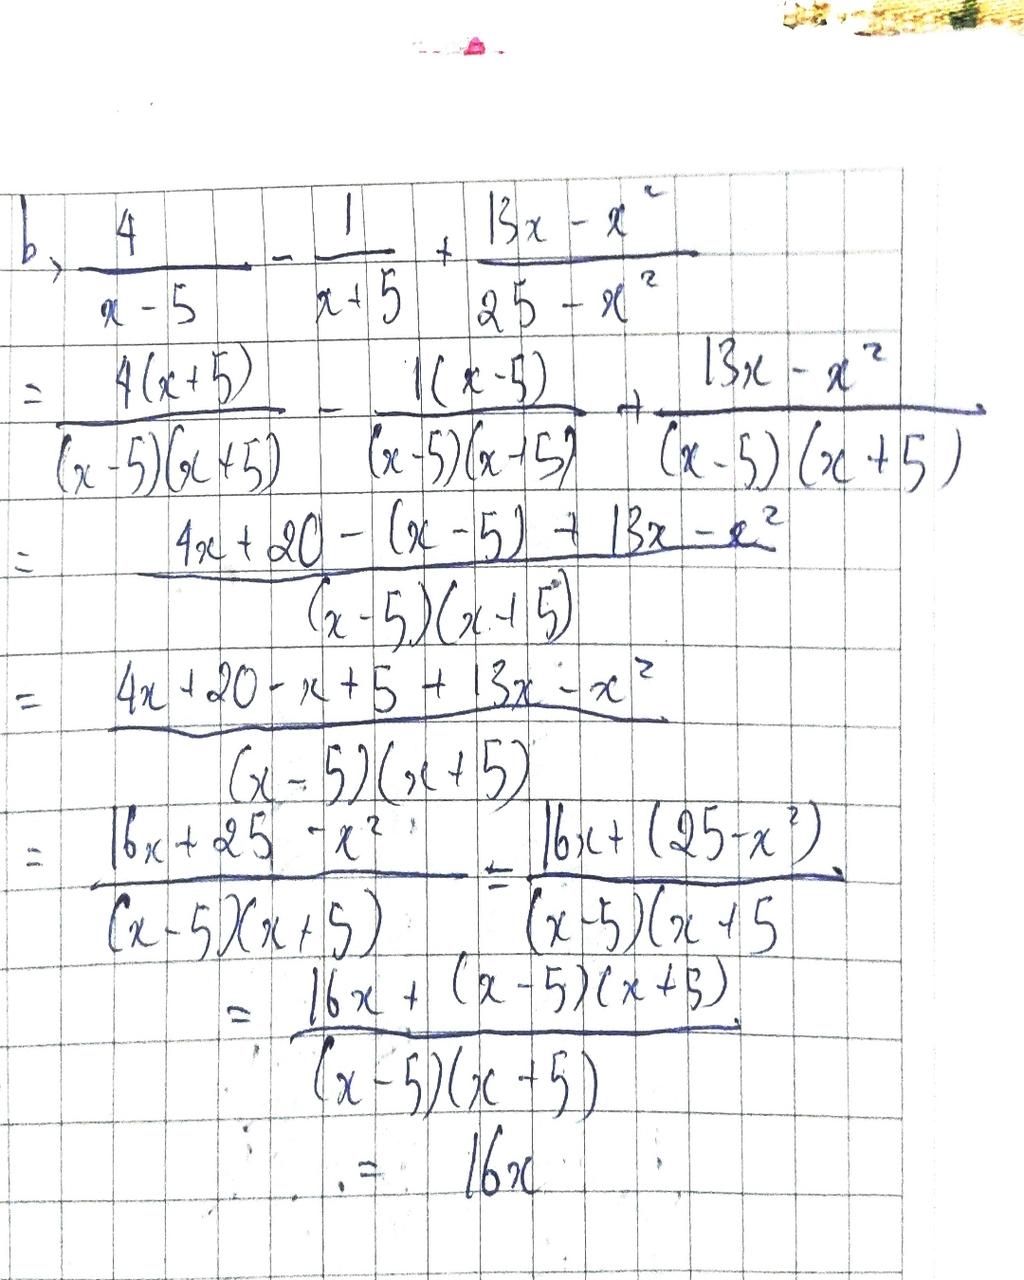 b, 4/(x - 5) - 1/(x + 5) + (13x - x²)/(25 - x²)
= 4(x + 5)/((x - 5)(x + 5)) - 1(x - 5)/((x - 5)(x + 5)) + (13x - x²)/((x - 5)(x + 5))
= (4x + 20 - (x - 5) + 13x - x²)/((x - 5)(x + 5))
= (4x + 20 - x + 5 + 13x - x²)/((x - 5)(x + 5))
= (16x + 25 - x²)/((x - 5)(x + 5)) = (16x + (25 - x²))/((x - 5)(x + 5
= (16x + (x - 5)(x + 5))/((x - 5)(x + 5))
= 16x